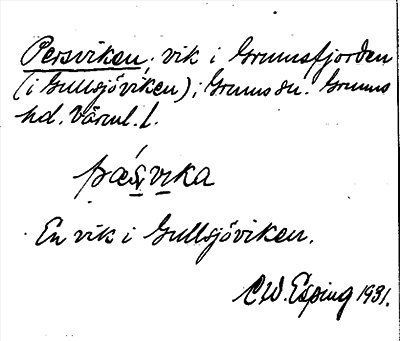 Persviken, vik i Grumsfjorden
(i Gullsjöviken) i Grums sn. Grums
hd. Värml. l.
En vik i Gullsjöviken.
C.W. Esping 1931.